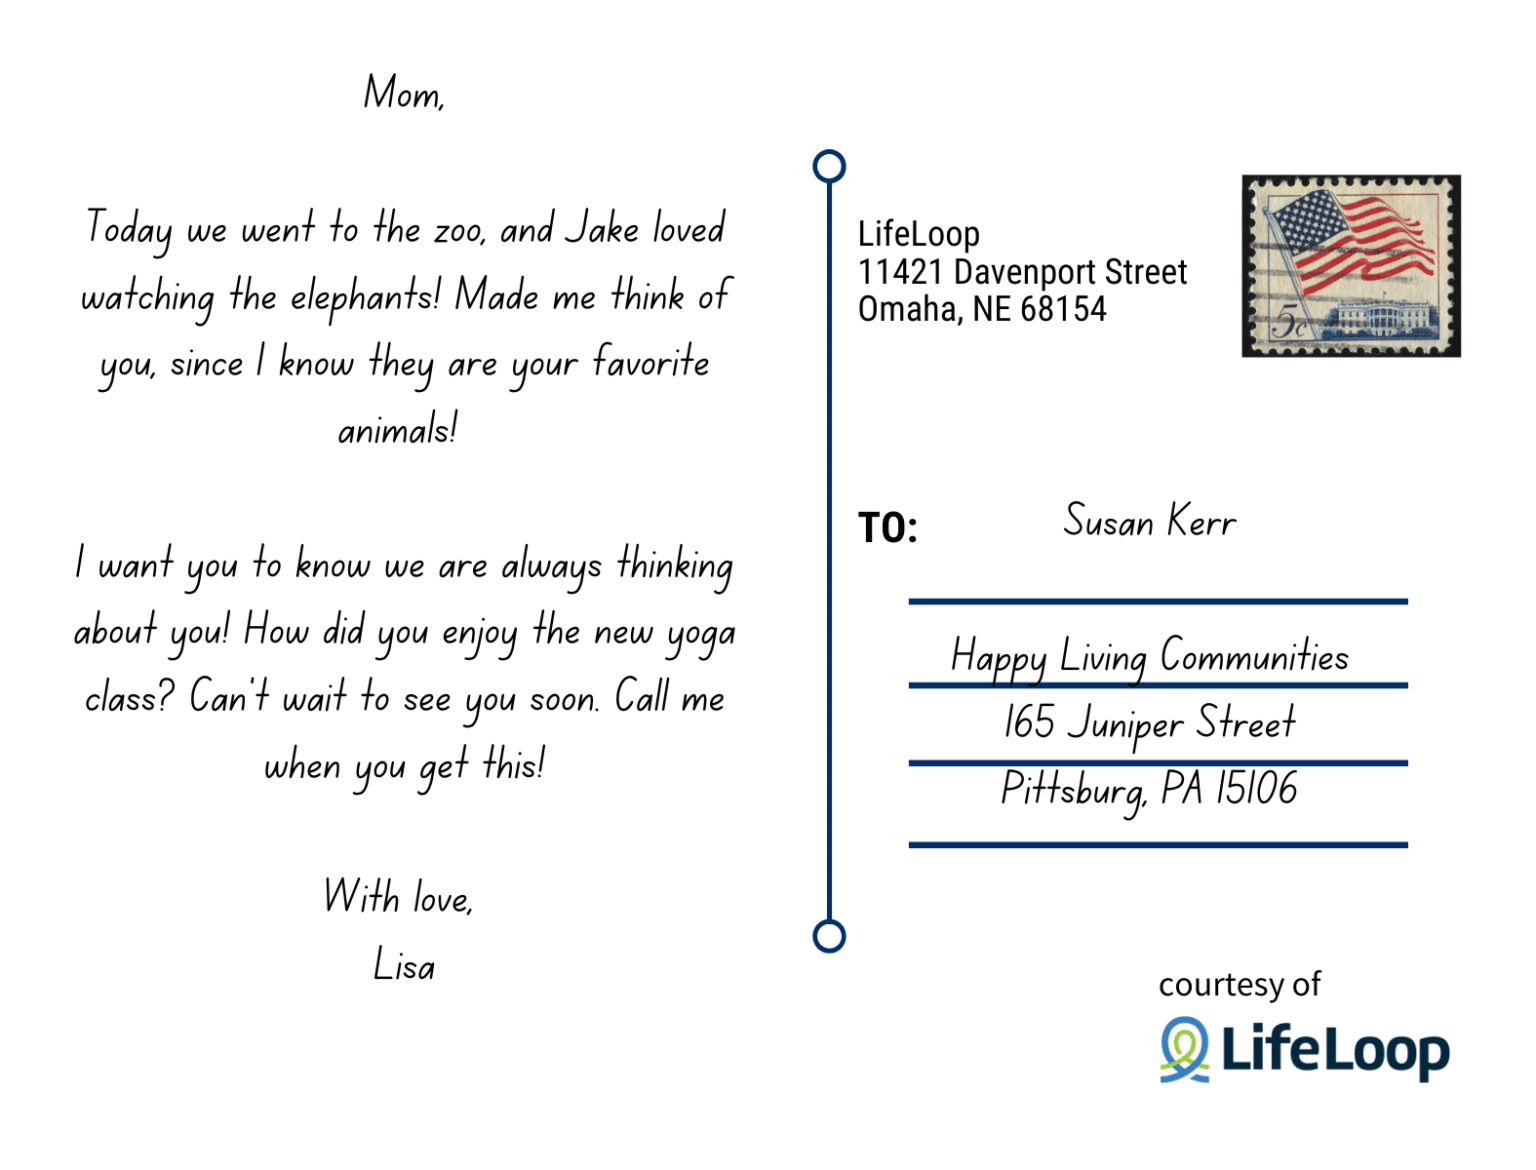 Mom,
Today we went to the zoo, and Jake loved
watching the elephants! Made me think of
you, since I know they are your favorite
animals!
I want you to know we are always thinking
about you! How did you enjoy the new yoga
class? Can't wait to see you soon. Call me
when you get this!
With love,
Lisa
LifeLoop
11421 Davenport Street
Omaha, NE 68154
5c
TO:
Susan Kerr
Happy Living Communities
165 Juniper Street
Pittsburg, PA 15106
courtesy of
LifeLoop